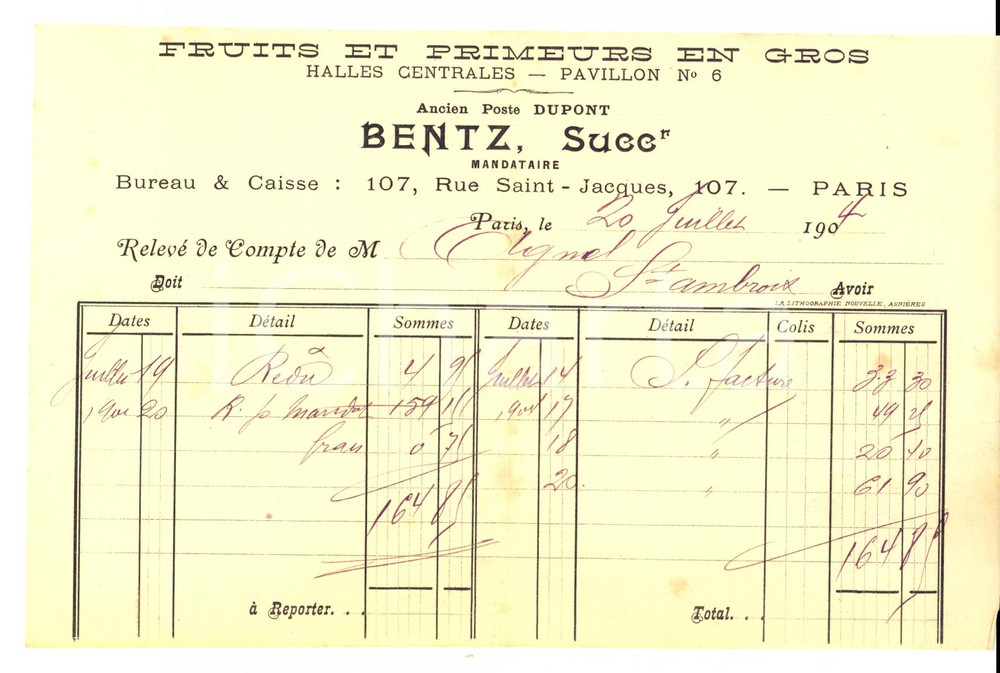 FRUITS ET PRIMEURS EN GROS
HALLES CENTRALES — PAVILLON No 6
Ancien Poste DUPONT
BENTZ, Succr
MANDATAIRE
Bureau & Caisse : 107, Rue Saint-Jacques, 107. — PARIS
Paris, le 20 Juillet 1904
Relevé de Compte de M
St ambroix
Doit Avoir
LA LITHOGRAPHIE NOUVELLE, ASNIÈRES
Dates Détail Sommes Dates Détail Colis Sommes
Juillet 19 Redû 4 95 Juillet 14 S. facture 33 30
1904 20 R. p mandat 159 15 1904 17 " 49 25
frais 0 75 18 " 20 40
20 " 61 90
164 85
164 85
à Reporter. . . Total. . .